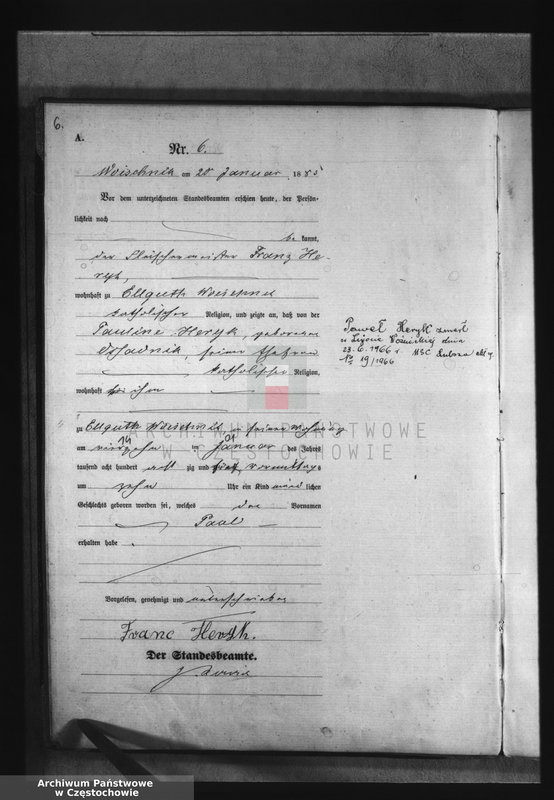 6.
A.
Nr. 6.
Woischnik am 20 Januar 1885
Vor dem unterzeichneten Standesbeamten erschien heute, der Persön-
lichkeit nach
be kannt,
der Fleischermeister Franz He-
ryk,
wohnhaft zu Ellguth Woischnik
katholischer Religion, und zeigte an, daß von der
Pauline Heryk, geborenen
seiner Ehefrau
katholischer Religion,
wohnhaft bei ihm
zu Ellguth Woischnik in seiner Wohnung
am vierzehn 14 ten Januar 01 des Jahres
tausend acht hundert acht zig und fünf vormittags
um zehn Uhr ein Kind männ lichen
Geschlechts geboren worden sei, welches den Vornamen
Paul
erhalten habe .
Vorgelesen, genehmigt und unterschrieben
Franc Heryk.
Der Standesbeamte.
Paweł Heryk zmarł
w Ligocie Woźnickiej dnia
23.6.1966 r. USC akt
19/1966
ARCHIWUM PAŃSTWOWE
W CZĘSTOCHOWIE
Archiwum Państwowe
w Częstochowie